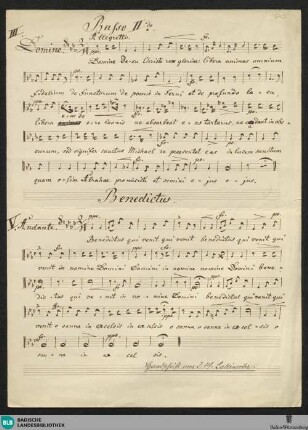 Basso II do.
III.
Allegretto
Domine
Domine Jesu Christe rex gloriae libera animas omnium
fidelium de functorum de poenis in ferni et de profundo la - cu
libera
ne cadant in obs
curum, sed signifer sanctus Michael re presentet eas in lucem sanctam
quam o - lim Abrahae promisisti et semini e - jus - jus
Benedictus
V.
Andante
Benedictus qui venit qui venit benedictus qui venit qui
venit in nomine Domini Domini in nomine nomine Domini bene -
dic - tus qui ve - nit no - mine Domini benedictus qui venit qui
venit o - sanna in excelsis in excelsis o - sanna o - sanna in ex - cel - sis o -
san - na in ex cel sis.
BLB BADISCHE LANDESBIBLIOTHEK